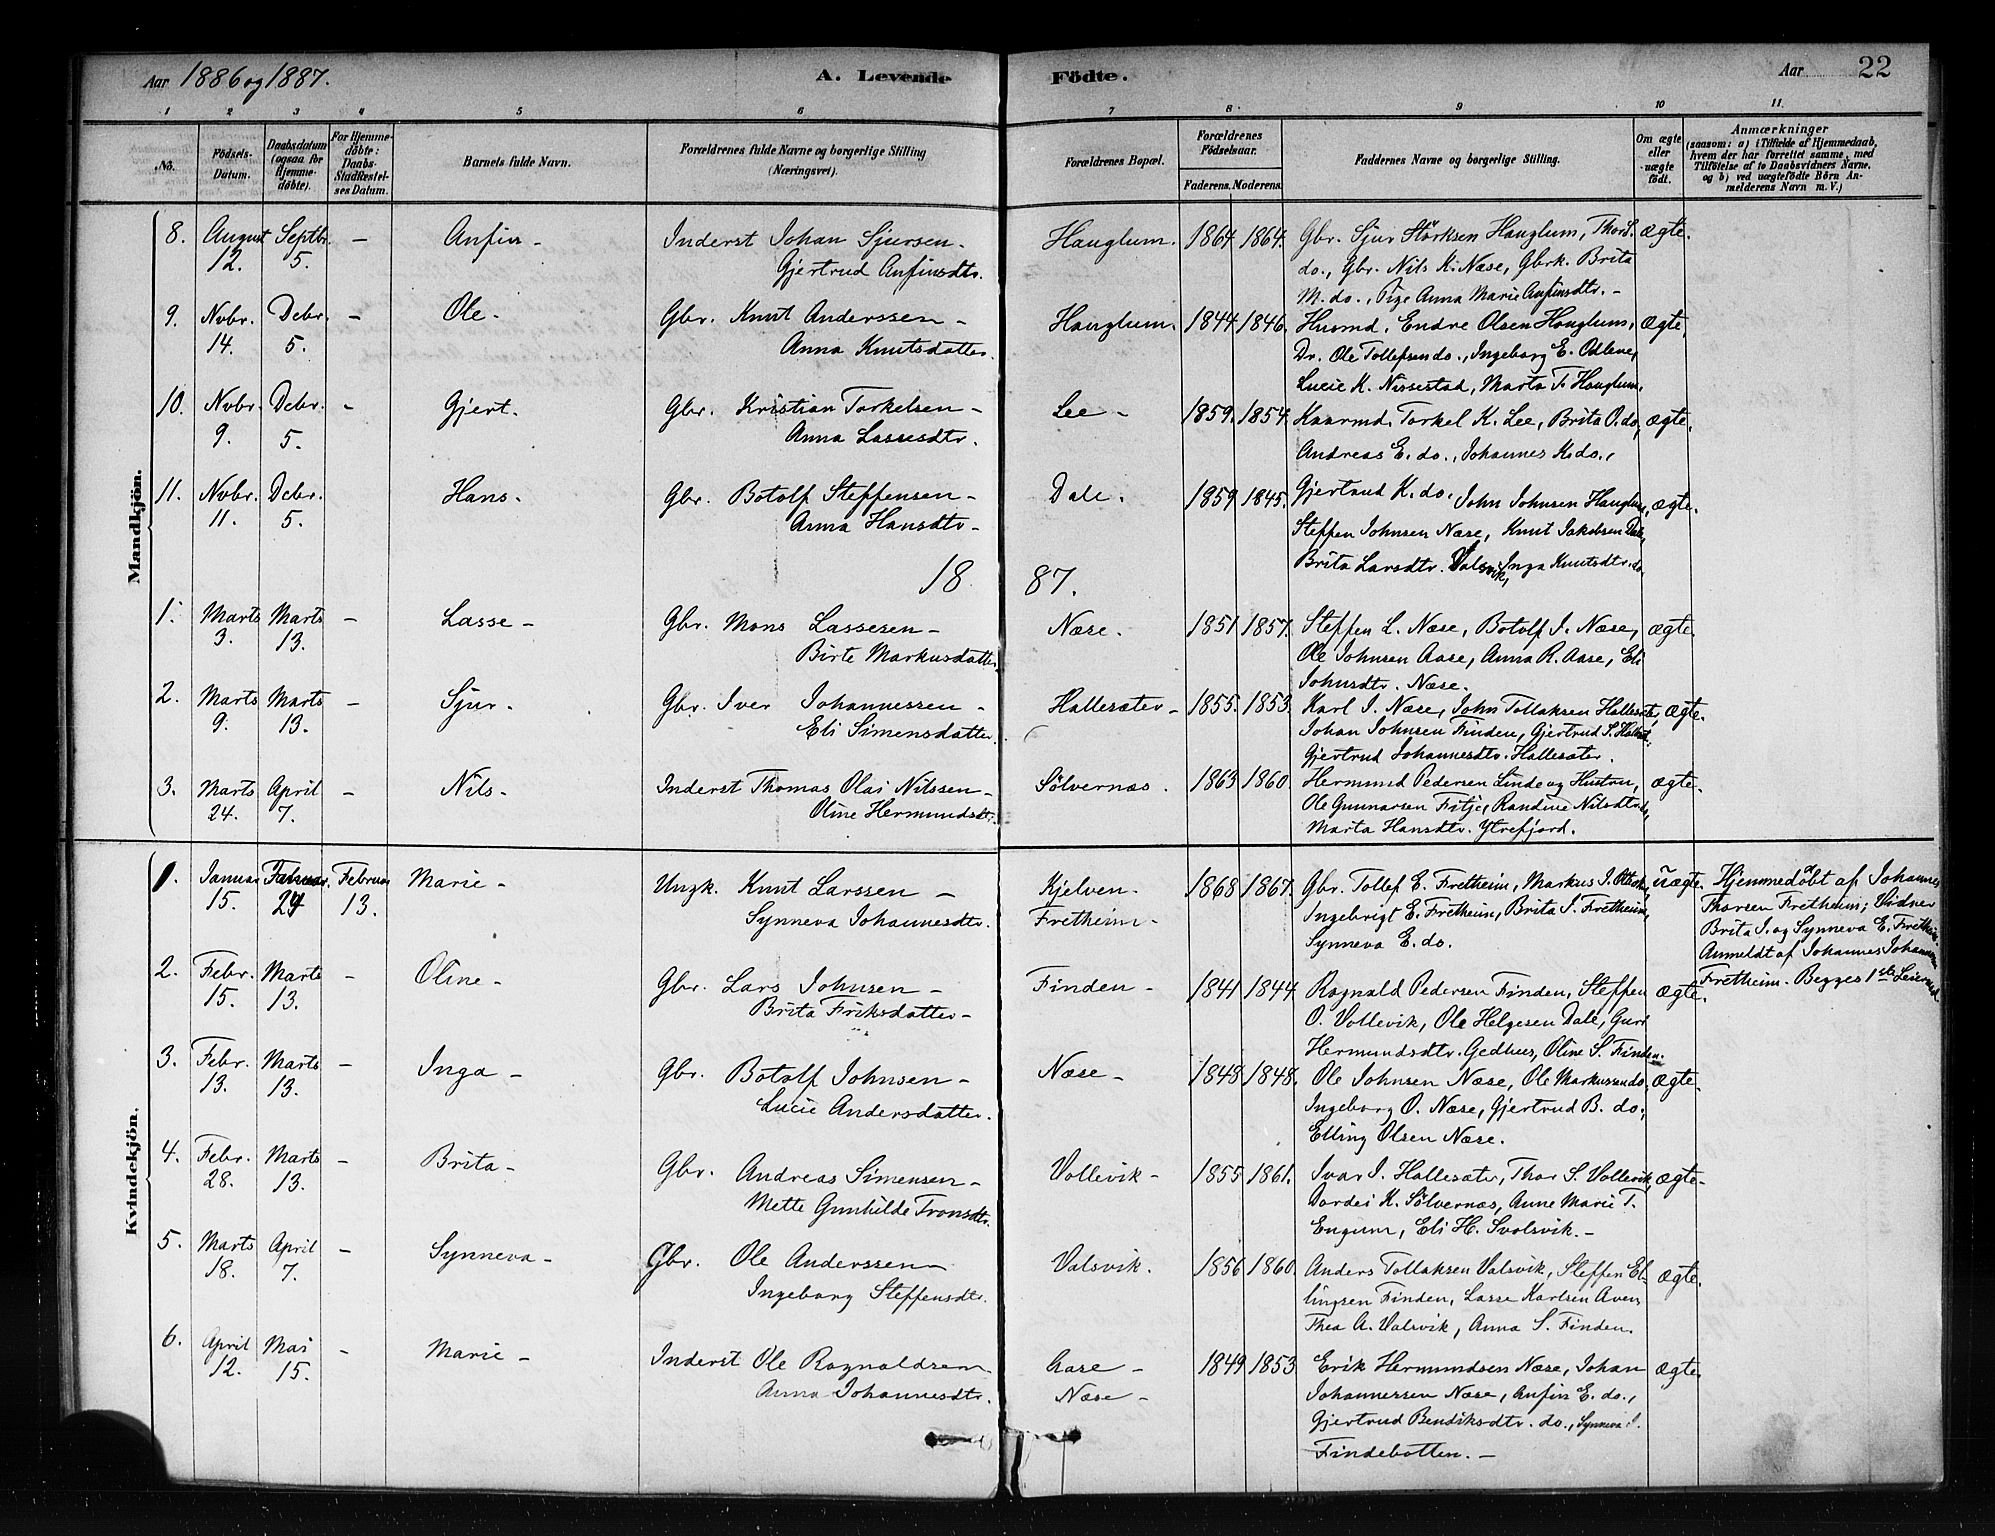 Aar 1886 og 1887. A. Levende Fødte. Aar 22
1 2 3 4 5 6 7 8 9 10 11.
No. Fødsels-Datum. Daabsdatum (ogsaa for Hjemmedøbte). For Hjemmedøbte: Daabs-Stadfæstelses Datum. Barnets fulde Navn. Forældrenes fulde Navne og borgerlige Stilling (Næringsvei). Forældrenes Bopæl. Forældrenes Fødselsaar. Faderens. Moderens. Faddernes Navne og borgerlige Stilling. Om ægte eller uægte født. Anmærkninger (saasom: a) i Tilfælde af Hjemmedaab, hvem der har forrettet samme, med Tilføielse af to Daabsvidners Navne, og b) ved uægtefødte Børn Anmelderens Navn m. V.)
Mandkjön.
8. August Septbr. - Anfin - Inderst Johan Sjursen - Hauglum. 1864. 1864. Gbr. Sjur Størksen Hauglum, Thor S. ægte.
12. 5. Gjertrud Anfinsdtr. do., Gbr. Nils K. Næse, Gbrk. Brita
M. do., Pige Anna Marie Anfinsdtr. -
9. Nvbr. Debr. - Ole - Gbr. Knut Anderssen - Hauglum. 1844. 1846. Husmd. Endre Olsen Hauglum, ægte.
14. 5. Anna Knutsdatter. Dr. Ole Tollefsen do., Ingeborg E. Odlene,
Lucie K. Nissestad, Marta T. Hauglum.
10. Nvbr. Debr. - Gjert. Gbr. Kristian Torkelsen - Lee - 1859. 1854. Kaarmd. Torkel K. Lee, Brita O. do, ægte.
9. 5. Anna Lassesdtr. Andreas E. do., Johannes K. do.,
11. Nvbr. Debr. Hans. Gbr. Botolf Steffensen - Dale. 1859 1845. Gjertrud K. do. John Johnsen Hauglum, ægte.
11. 5. Anna Hansdtr - Steffen Johnsen Næse, Knut Jakobsen Dale,
Brita Larsdtr. Valsvik, Inga Knutsdtr. do.
1887.
1. Marts Marts - Lasse - Gbr. Mons Lassesen - Næse. 1851 1857. Steffen L. Næse, Botolf I. Næse, ægte.
3. 13. Birte Markusdatter. Ole Johnsen Aase, Anna R. Aase, Eli
Johnsdtr. Næse.
2. Marts Marts - Sjur - Gbr. Iver Johannessen - Hallesæter - 1855. 1853. Karl I. Næse, John Tollaksen Hallesæter, ægte.
9. 13. Eli Simensdatter. Johan Johnsen Finden, Gjertrud S. Halles.
Gjertrud Johannesdtr. Hallesæter.
3. Marts April - Nils - Inderst Thomas Olai Nilssen - Sølvernæs. 1863 1860. Hermund Pedersen Linde og Hustru, ægte.
24. 7. Oline Hermundsdtr. Ole Gunnarsen Fitje, Randine Nilsdtr. do,
Marta Hansdtr. Ytrefjord.
Kvindekjön.
1. Januar Februar Marie - Ungk. Knut Larssen - Kjelven - 1868 1867. Gbr. Tollef E. Fretheim, Markus I. uægte. Hjemmedøbt af Johannes
15. 13. Synneva Johannesdtr. Fretheim - Ingebrigt E. Fretheim, Brita I. Fretheim, Thorsen Fretheim; Vidner
Synneva E. do. Brita I. og Synneva E. Fretheim.
Anmeldt af Johannes
Fretheim. Begges 1ste Leiermaal
2. Febr. Marts - Oline - Gbr. Lars Johnsen - Finden - 1841 1844. Ragnald Pedersen Finden, Steffen ægte.
15. 13. Brita Eriksdatter - O. Vollevik, Ole Helgesen Dale, Guri
Hermundsdtr. Gedhus, Oline S. Finden.
3. Febr. Marts - Inga - Gbr. Botolf Johnsen - Næse - 1848 1848. Ole Johnsen Næse, Ole Markussen do, ægte.
13. 13. Lucie Andersdatter. Ingeborg O. Næse, Gjertrud B. do.,
Elling Olsen Næse.
4. Febr. Marts - Brita - Gbr. Andreas Simensen - Vollevik - 1855 1861. Ivar I. Hallesæter, Thor S. Vollevik, ægte -
28. 13. Mette Gunhilde Tronsdtr. Dordei K. Sølvernæs, Anne Marie T.
Engum, Eli H. Svolsvik. -
5. Marts April - Synneva - Gbr. Ole Anderssen - Valsvik. 1856 1860. Anders Tollaksen Valsvik, Steffen El- ægte.
18. 7. Ingeborg Steffensdtr. lingsen Finden, Lasse Karlsen Aven,
Thea A. Valsvik, Anna S. Finden.
6. April Mai - Marie - Inderst Ole Ragnaldsen Aase - 1849 1853 Erik Hermundsen Næse, Johan ægte.
12. 15. Anna Johannesdtr. Næse - Johannessen Næse, Anfin E. do.,
Gjertrud Bendiksdtr. do., Synneva I.
Findebotten. -